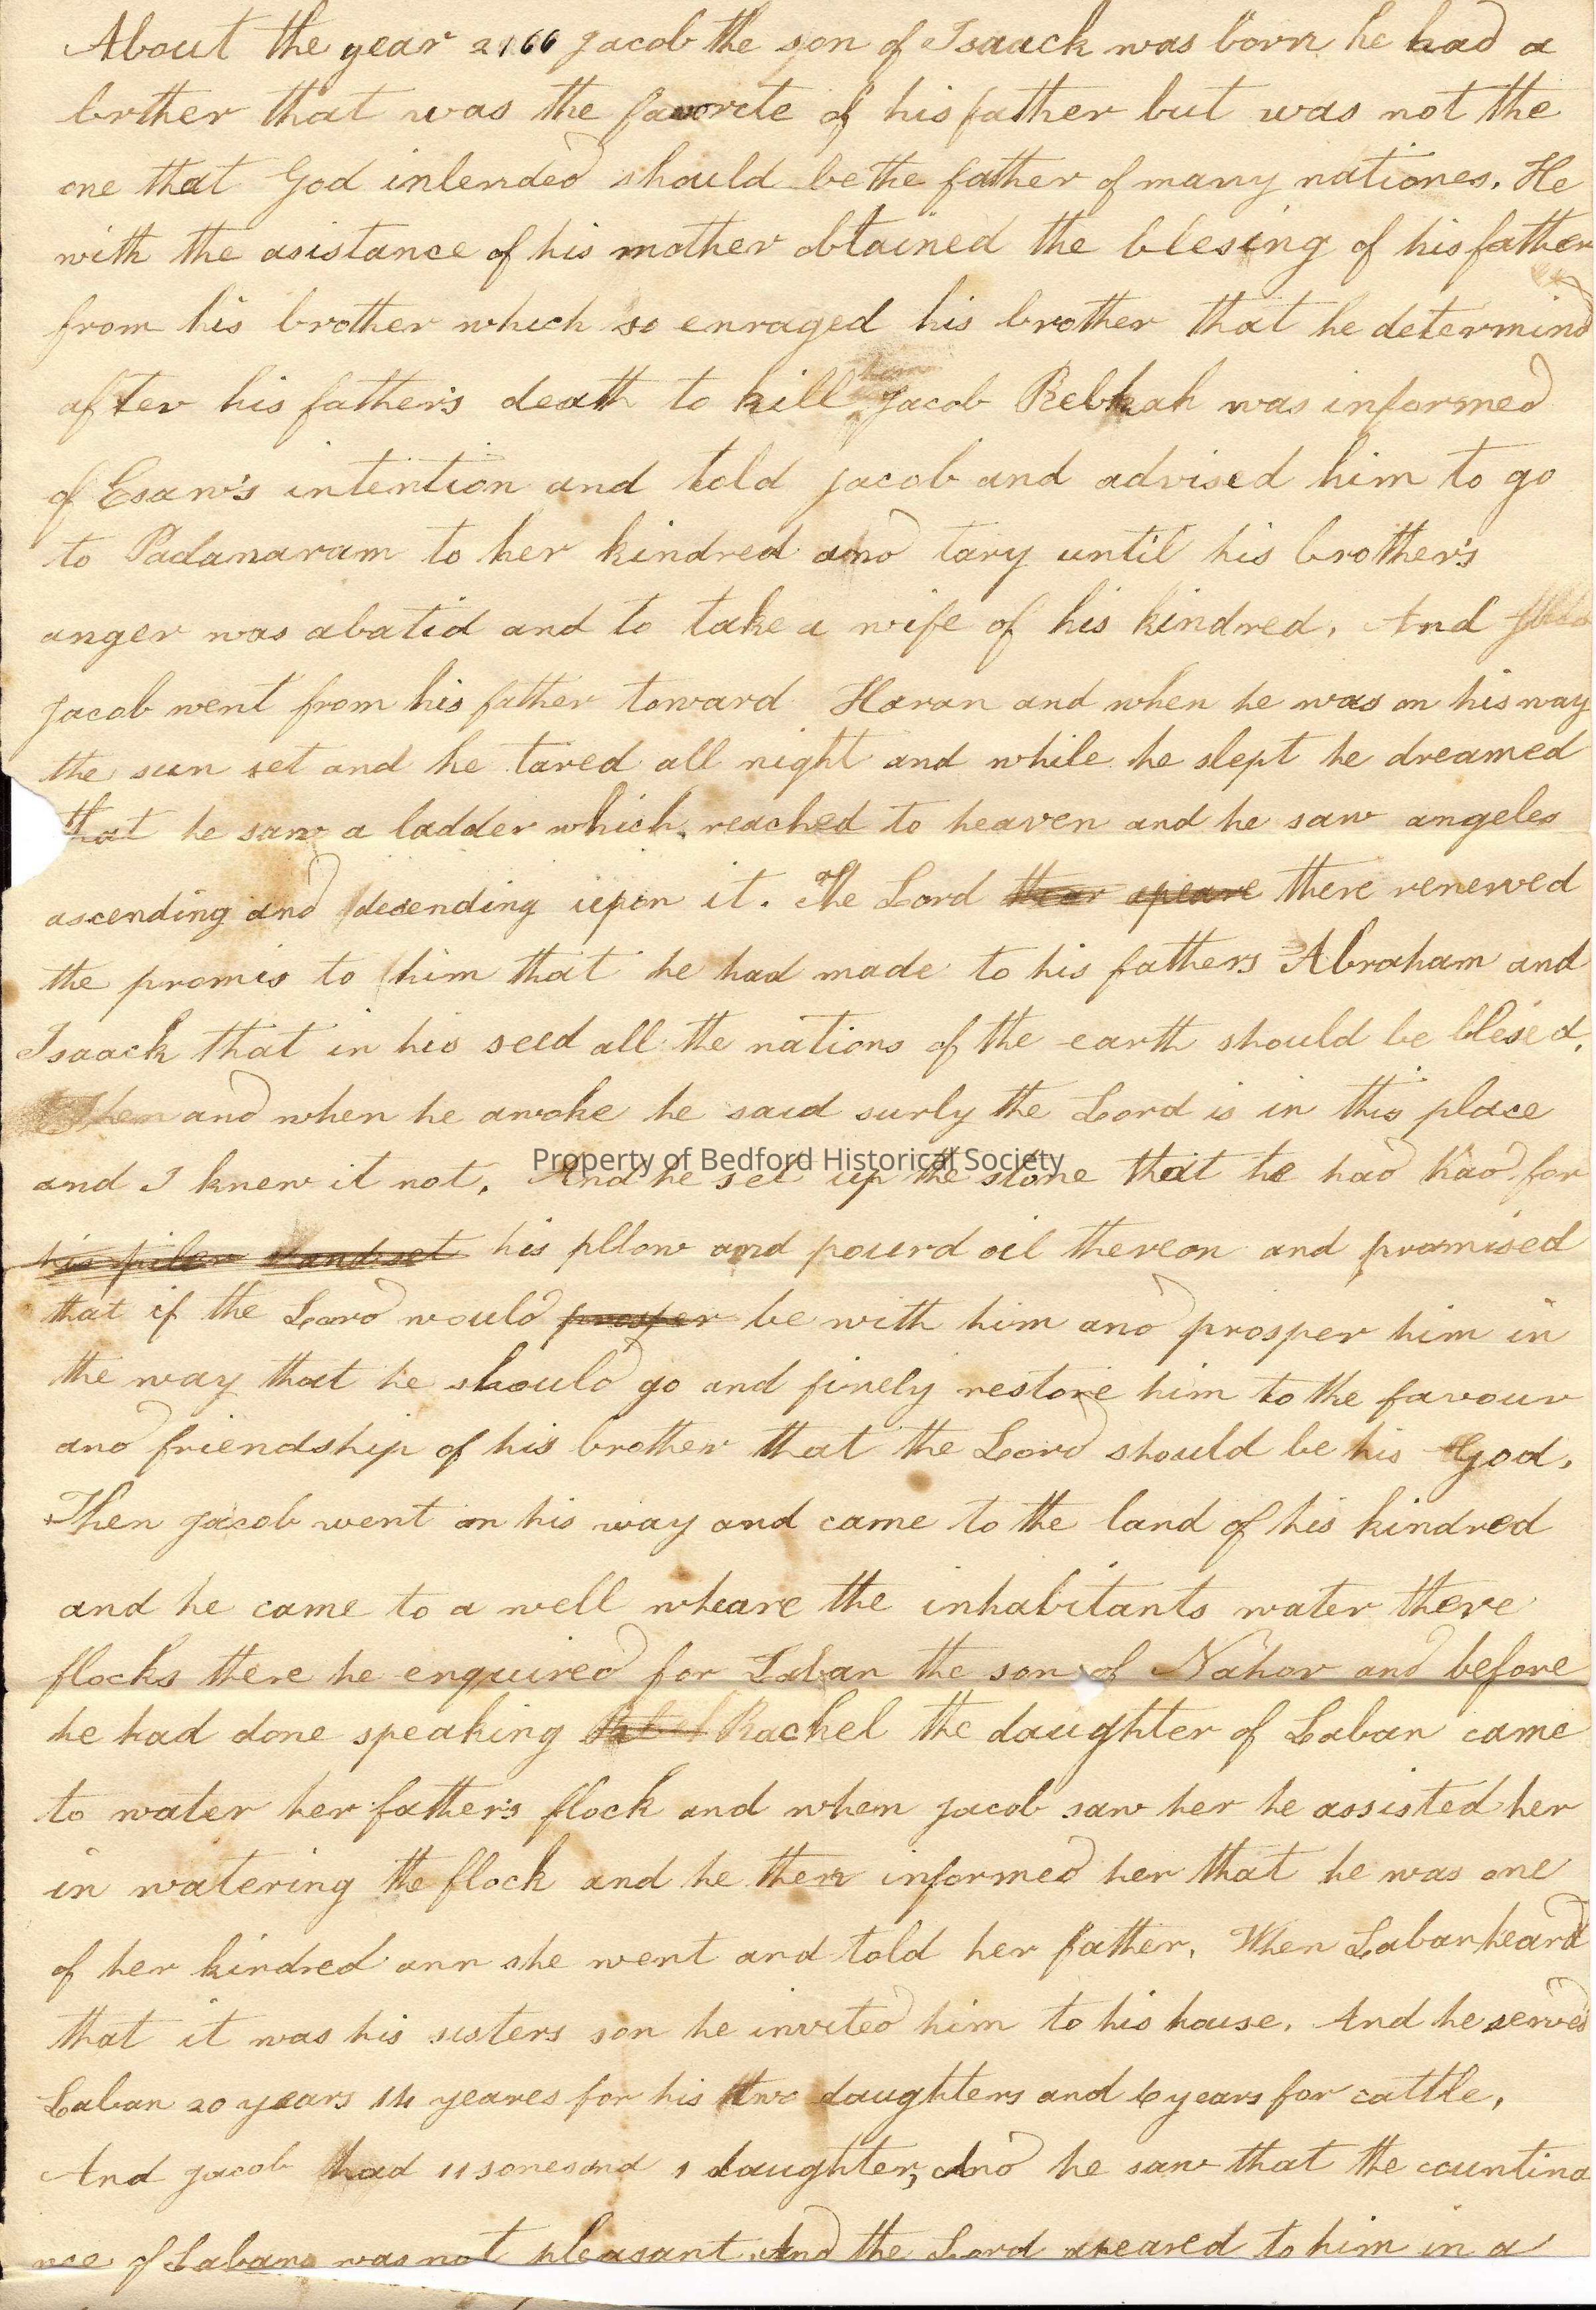 About the year 2166 Jacob the son of Isaack was born he had a
brther that was the favorete of his father but was not the
one that God intended should be the father of many nationes. He
with the asistance of his mother obtained the blesing of his father
from his brother which so enraged his brother that he determind
after his father's death to kill Jacob Rebkah was informed
of Esaw's intention and told Jacob and advised him to go
to Padanaram to her kindred and tary until his brother's
anger was abatid and to take a wife of his kindred. And
Jacob went from his father toward Haran and when he was on his way
the sun set and he tared all night and while he slept he dreamed
that he saw a ladder which reached to heaven and he saw angeles
ascending and decending upon it. The Lord thear apeare there renewed
the promis to him that he had made to his fathers Abraham and
Isaack that in his seed all the nations of the earth should be blesed.
Then and when he awoke he said surly the Lord is in this place
Property of Bedford Historical Society
and I knew it not. And he set up the stone that he had had for
his piler and set his pllow and pourd oil thereon and promised
that if the Lord would prosper be with him and prosper him in
the way that he should go and finely restore him to the favour
and friendship of his brother that the Lord should be his God.
Then Jacob went on his way and came to the land of his kindred
and he came to a well wheare the inhabitants water there
flocks there he enquired for Laban the son of Nahor and before
he had done speaking Rachel the daughter of Laban came
to water her father's flock and when Jacob saw her he assisted her
in watering the flock and he then informed her that he was one
of her kindred ann she went and told her father. When Laban heard
that it was his sisters son he invited him to his house. And he served
Laban 20 years 14 yeares for his two daughters and 6 years for cattle.
And Jacob had 11 sones and 1 daughter, And he saw that the countina
nce of Labans was not pleasant. And the Lord apeared to him in a